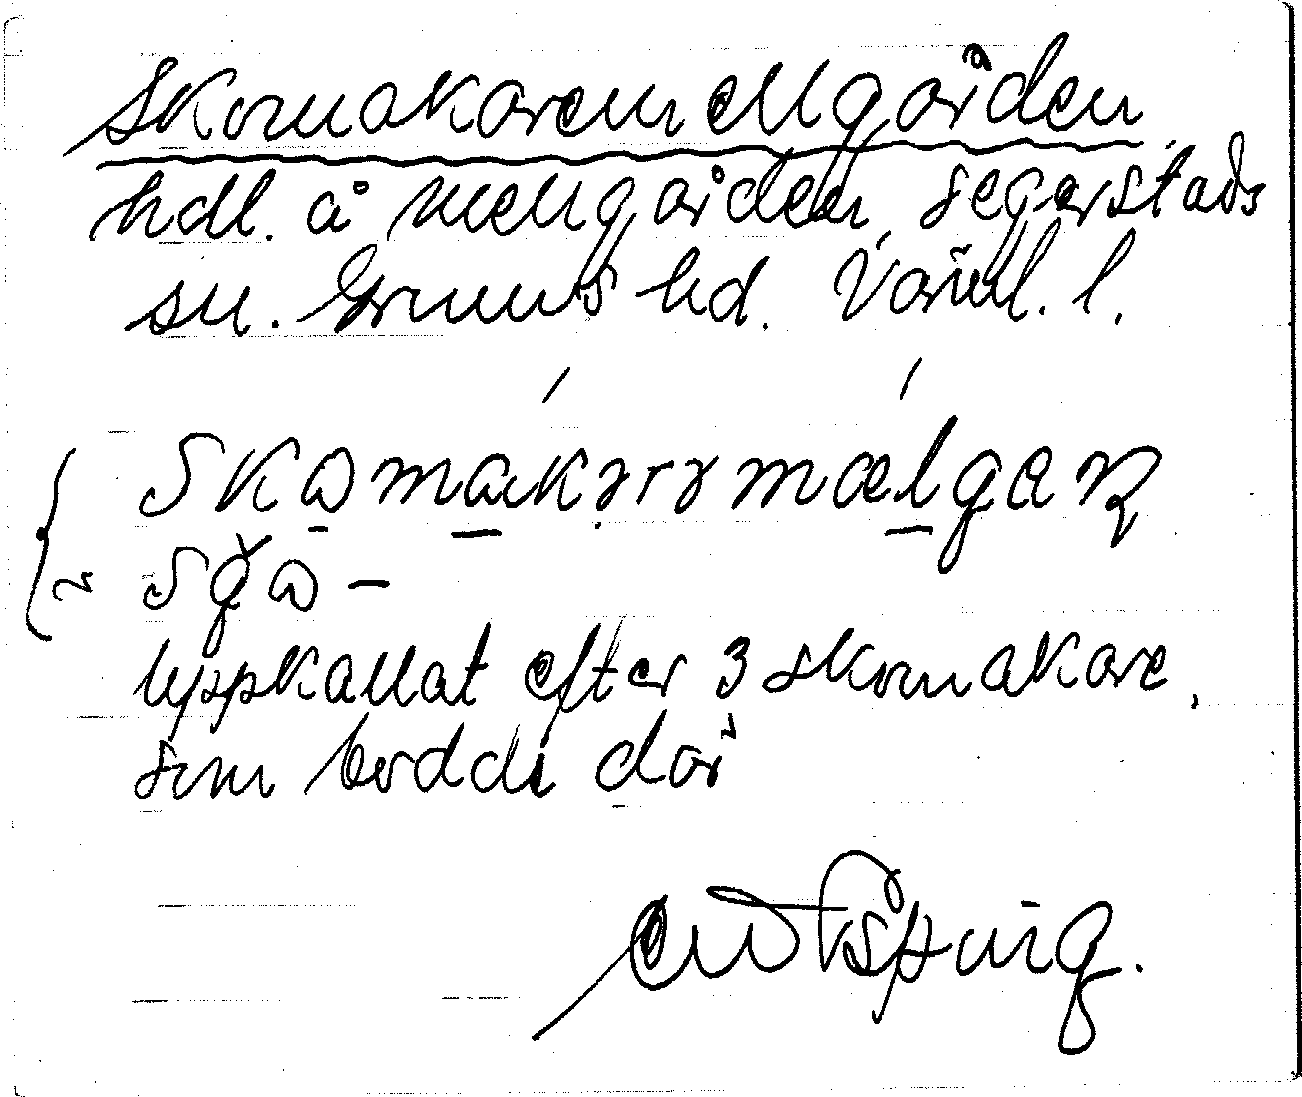 Skomakaremellgården
hdl. å Mellgården, Segerstads
sn. Grums hd. Värml. l.
skomakərəmælgaɳ
uppkallat efter 3 skomakare,
som bodde där